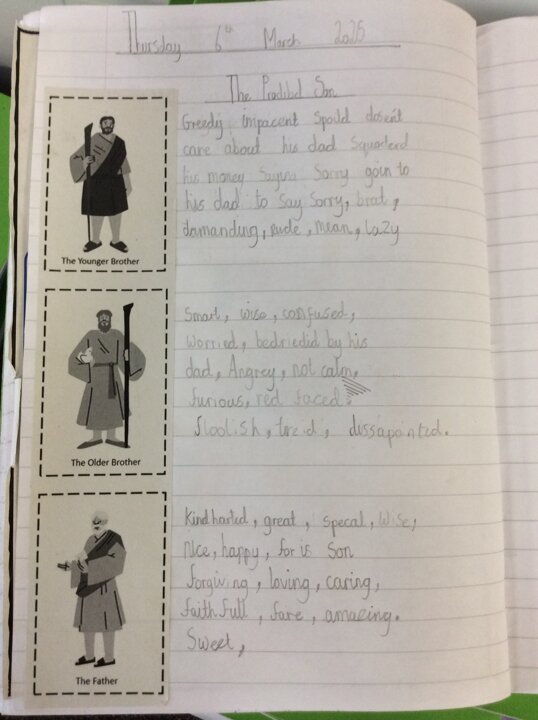 Thursday 6th March 2025
The Prodibal Son
Greedy impacent Spoild dosen't
care about his dad Squaderd
his money Saying Sorry goin to
his dad to say Sorry, brat,
damanding, Rude, mean, Lazy
The Younger Brother
Smart, wise, confused,
Worried, bedriedid by his
dad, Angrey, not calm,
furious, red faced,
floolish, tired, dissapointed.
The Older Brother
Kindharted, great, specal, Wise,
Nice, happy, for is Son
forgiving, loving, caring,
faithfull, fare, amazing.
Sweet,
The Father